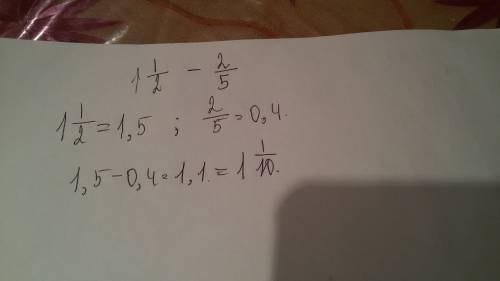 1 1/2 − 2/5
1 1/2 = 1,5 ; 2/5 = 0,4.
1,5 − 0,4 = 1,1. = 1 1/10.